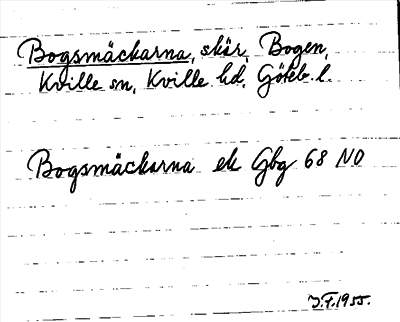 Bogsmäckarna, skär, Bogen,
Kville sn, Kville hd, Göteb. l.
Bogsmäckarna ek Gbg 68 NO
J.F. 1955.